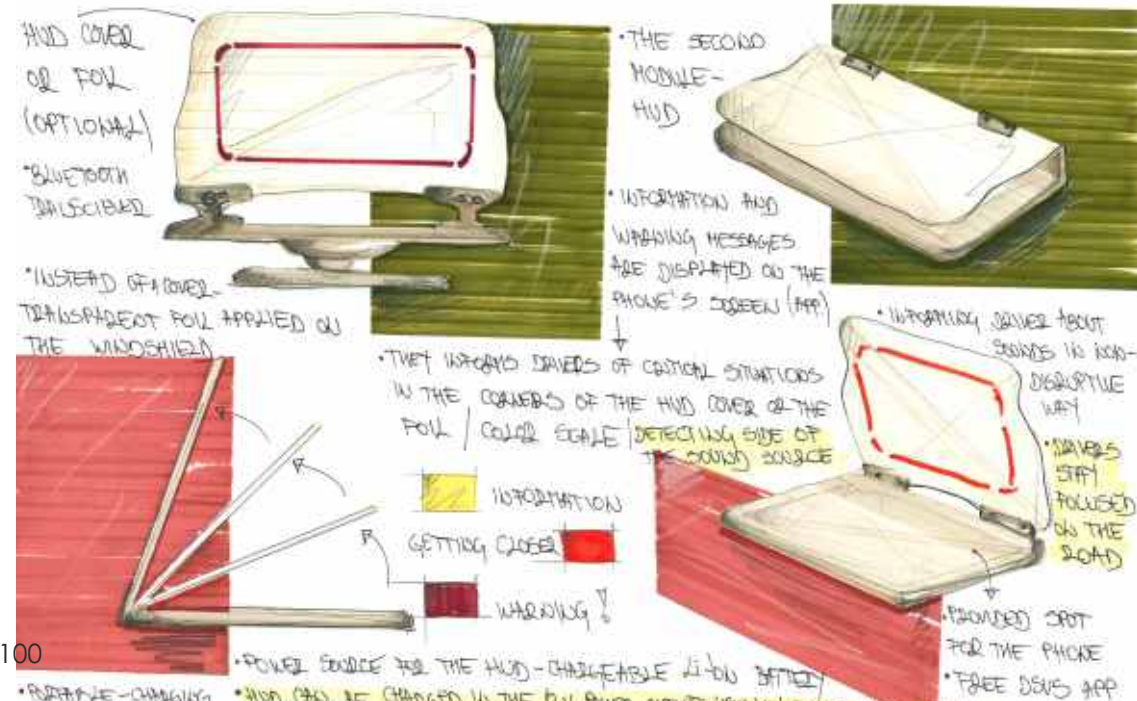 HUD COVER
OR FOIL
(OPTIONAL)
•BLUETOOTH
•INSTEAD OF A COVER-
TRANSPARENT FOIL APPLIED ON
THE WINDSHIELD
•THE SECOND
MODULE-
HUD
•INFORMATION AND
WARNING MESSAGES
ARE DISPLAYED ON THE
PHONE'S SCREEN (APP)
•THEY INFORMS DRIVERS OF CRITICAL SITUATIONS
IN THE CORNERS OF THE HUD COVER OR THE
FOIL / COLOR SCALE / DETECTING SIDE OF
THE SOUND SOURCE
INFORMATION
GETTING CLOSER
WARNING!
•INFORMING DRIVER ABOUT
SOUNDS IN NON-
DISRUPTIVE
WAY
•DRIVERS
STAY
FOCUSED
ON THE
ROAD
•PROVIDED SPOT
FOR THE PHONE
•FREE DSVS APP
100
•POWER SOURCE FOR THE HUD-CHARGEABLE Li-ION BATTERY
•PORTABLE-CHARGING
•HUD CAN BE CHARGED IN THE